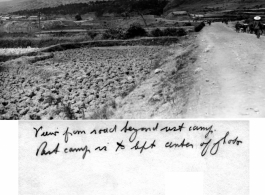 View from road beyond rest camp.
Rest camp is to left center of photo